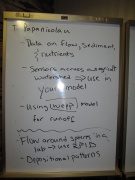 T. Papanicolaou
- Data on Flow, Sediment, nutrients
- Sensors across
watershed → use in
your model
- Using WEPP model
for runoff
- Flow around spheres in a
lab → use
- Depositional patterns